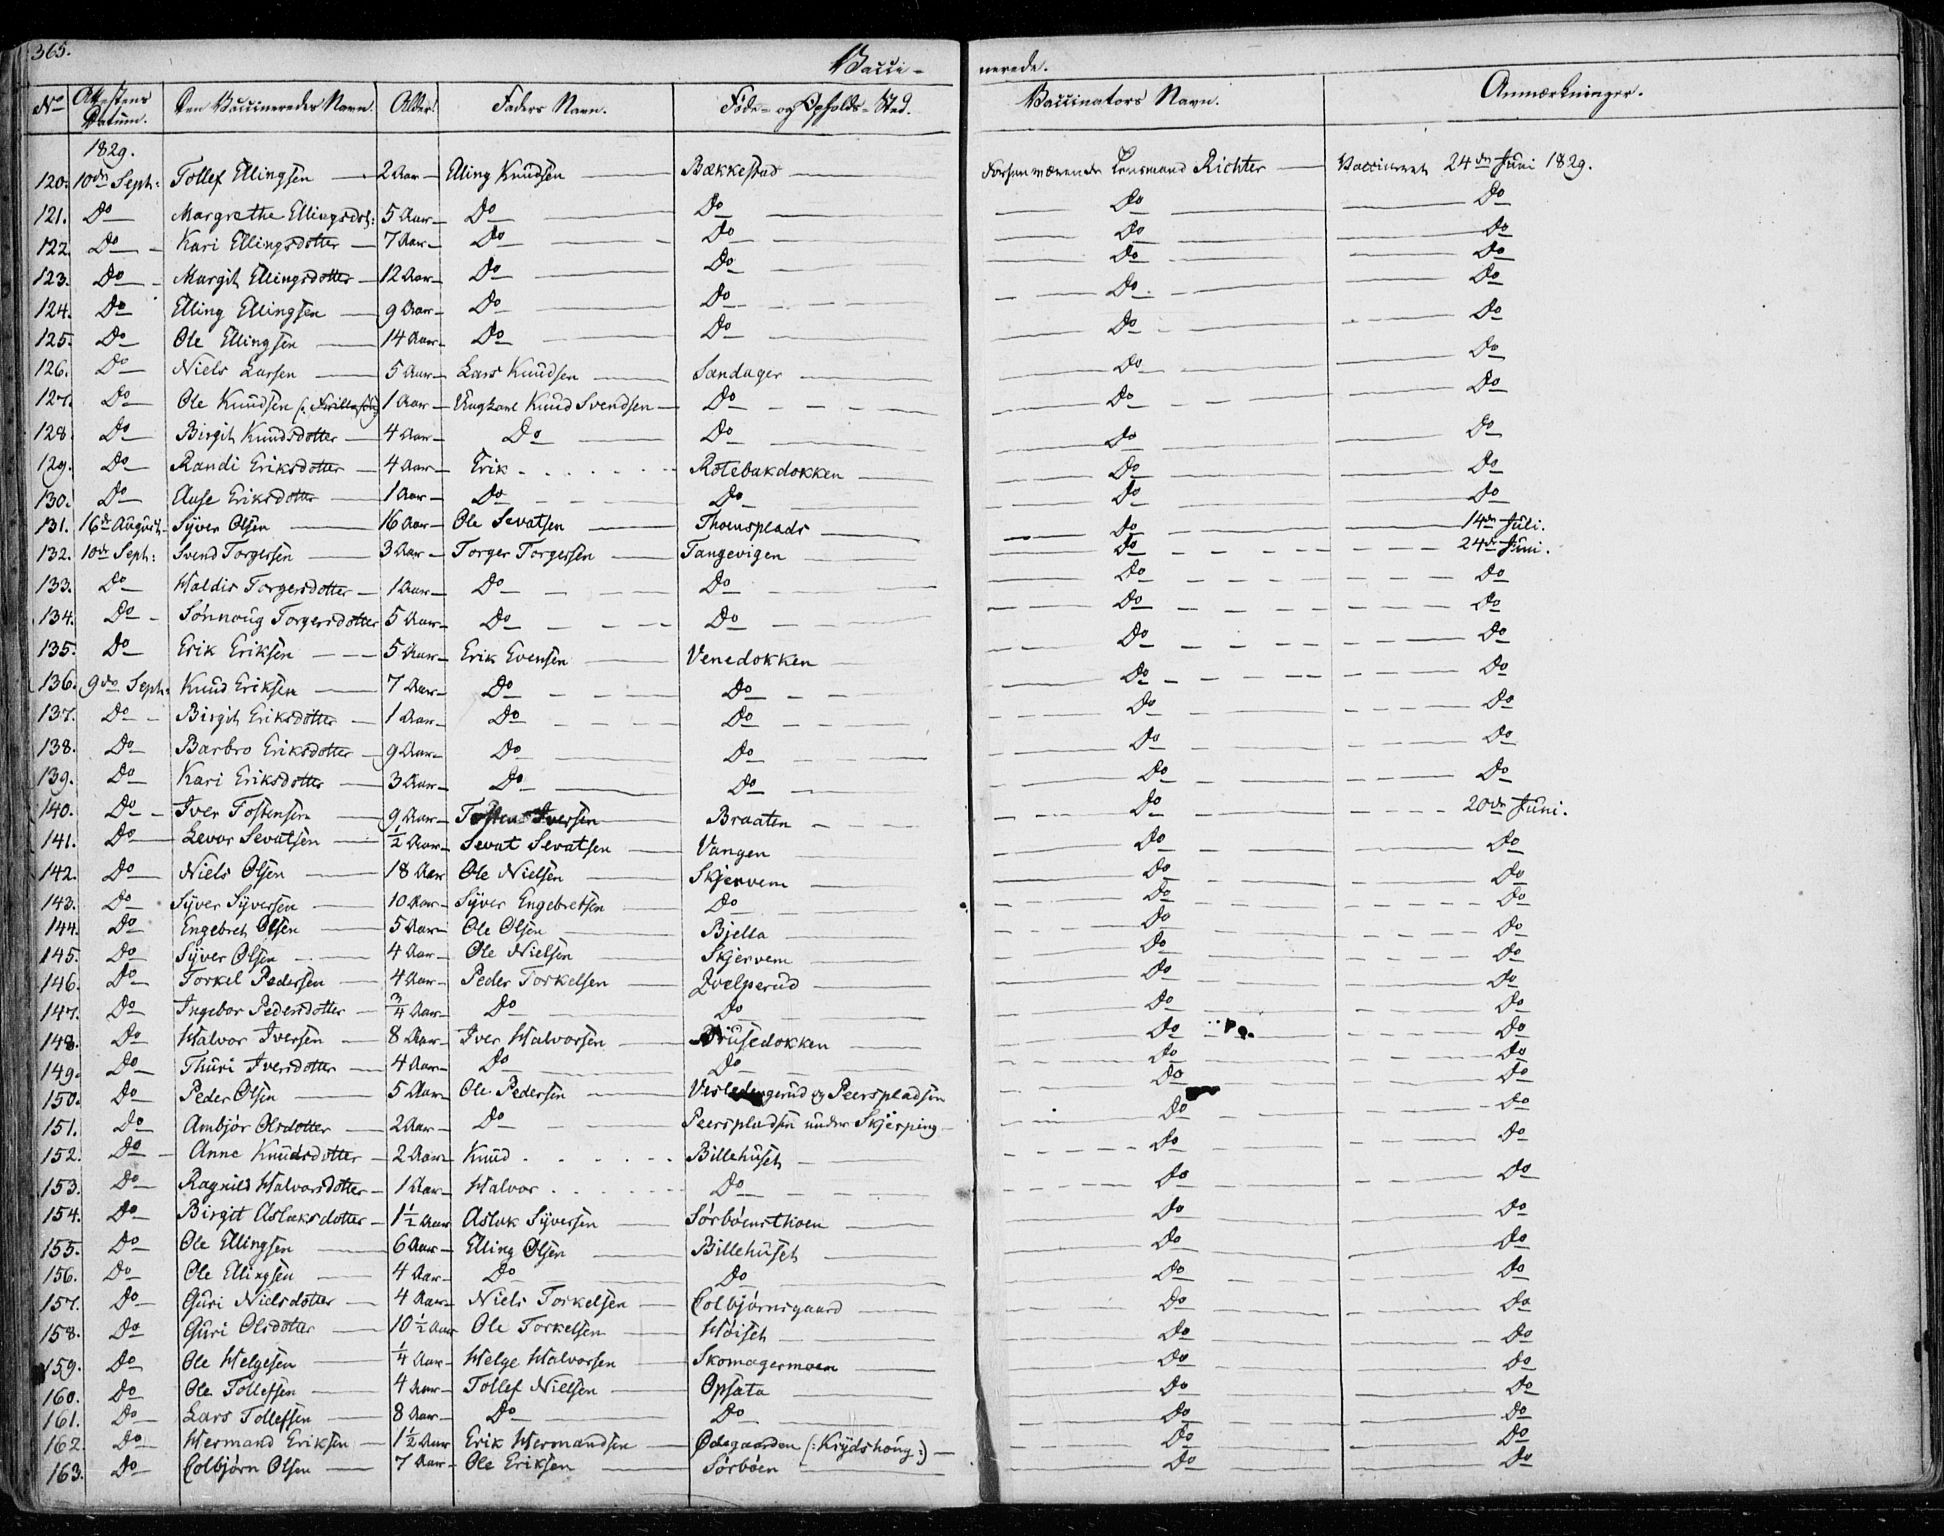 365.
Vacci-
nerede.
No Attestens Datum. Den Vaccineredes Navn. Alder. Faders Navn. Føde- og Opholds-Sted. Vaccinators Navn. Anmærkninger.
1829.
120. 10de Sept: Tollef Ellingsen 2 Aar Elling Knudsen Bækkestad Forhenværende Lensmand Richter Vaccineret 24de Juni 1829.
121. Do Margrethe Ellingsdot: 5 Aar Do Do Do Do
122. Do Kari Ellingsdotter 7 Aar Do Do Do Do
123. Do Margit Ellingsdotter 12 Aar Do Do Do Do
124. Do Elling Ellingsen 9 Aar Do Do Do Do
125. Do Ole Ellingsen 14 Aar Do Do Do Do
126. Do Niels Larsen 5 Aar Lars Knudsen Sandager Do Do
127. Do Ole Knudsen 1 Aar Ungkarl Knud Svendsen Do Do Do
128. Do Birgit Knudsdotter 4 Aar Do Do Do Do
129. Do Randi Eriksdotter 4 Aar Erik Rotebakdokken Do Do
130. Do Aase Eriksdotter 1 Aar Do Do Do Do
131. 16de August Syver Olsen 16 Aar Ole Sevatsen Thoensplads Do 14de Juli.
132. 10de Sept: Svend Torgersen 3 Aar Torger Torgersen Tangevigen Do 24de Juni.
133. Do Haldis Torgersdotter 1 Aar Do Do Do Do
134. Do Sønnoug Torgersdotter 5 Aar Do Do Do Do
135. Do Erik Eriksen 5 Aar Erik Evensen Venedokken Do Do
136. 9de Sept: Knud Eriksen 7 Aar Do Do Do Do
137. Do Birgit Eriksdotter 1 Aar Do Do Do Do
138. Do Barbro Eriksdotter 9 Aar Do Do Do Do
139. Do Kari Eriksdotter 3 Aar Do Do Do Do
140. Do Iver Tostensen 9 Aar Tosten Iversen Braaten Do 20de Juni.
141. Do Levor Sevatsen ½ Aar Sevat Sevatsen Vangen Do Do
142. Do Niels Olsen 18 Aar Ole Nielsen Skjervem Do Do
143. Do Syver Syversen 10 Aar Syver Engebretsen Do Do Do
144. Do Engebret Olsen 5 Aar Ole Olsen Bjella Do Do
145. Do Syver Olsen 4 Aar Ole Nielsen Skjervem Do Do
146. Do Torkel Pedersen 4 Aar Peder Torkelsen Qvelperud Do Do
147. Do Ingebor Pedersdotter ¾ Aar Do Do Do Do
148. Do Halvor Iversen 8 Aar Iver Halvorsen Brusedokken Do Do
149. Do Thuri Iversdotter 4 Aar Do Do Do Do
150. Do Peder Olsen 5 Aar Ole Pedersen og Peerspladsen Do Do
151. Do Ambjør Olsdotter 2 Aar Do Peerspladsen under Skjerping Do Do
152. Do Anne Knudsdotter 2 Aar Knud Billehuset Do Do
153. Do Ragnild Halvorsdotter 1 Aar Halvor Do Do Do
154. Do Birgit Aslaksdotter 1½ Aar Aslak Syversen Sørbøensthoen Do Do
155. Do Ole Ellingsen 6 Aar Elling Olsen Billehuset Do Do
156. Do Ole Ellingsen 4 Aar Do Do Do Do
157. Do Guri Nielsdotter 4 Aar Niels Torkelsen Colbjørnsgaard Do Do
158. Do Guri Olsdotter 10½ Aar Ole Torkelsen Høiset Do Do
159. Do Ole Helgesen ¼ Aar Helge Halvorsen Skomagermoen Do Do
160. Do Ole Tollefsen 4 Aar Tollef Nielsen Opsata Do Do
161. Do Lars Tollefsen 8 Aar Do Do Do Do
162. Do Hermand Eriksen 1½ Aar Erik Hermandsen Ødegaarden (: Krydshoug :) Do Do
163. Do Colbjørn Olsen 7 Aar Ole Eriksen Sørbøen Do Do